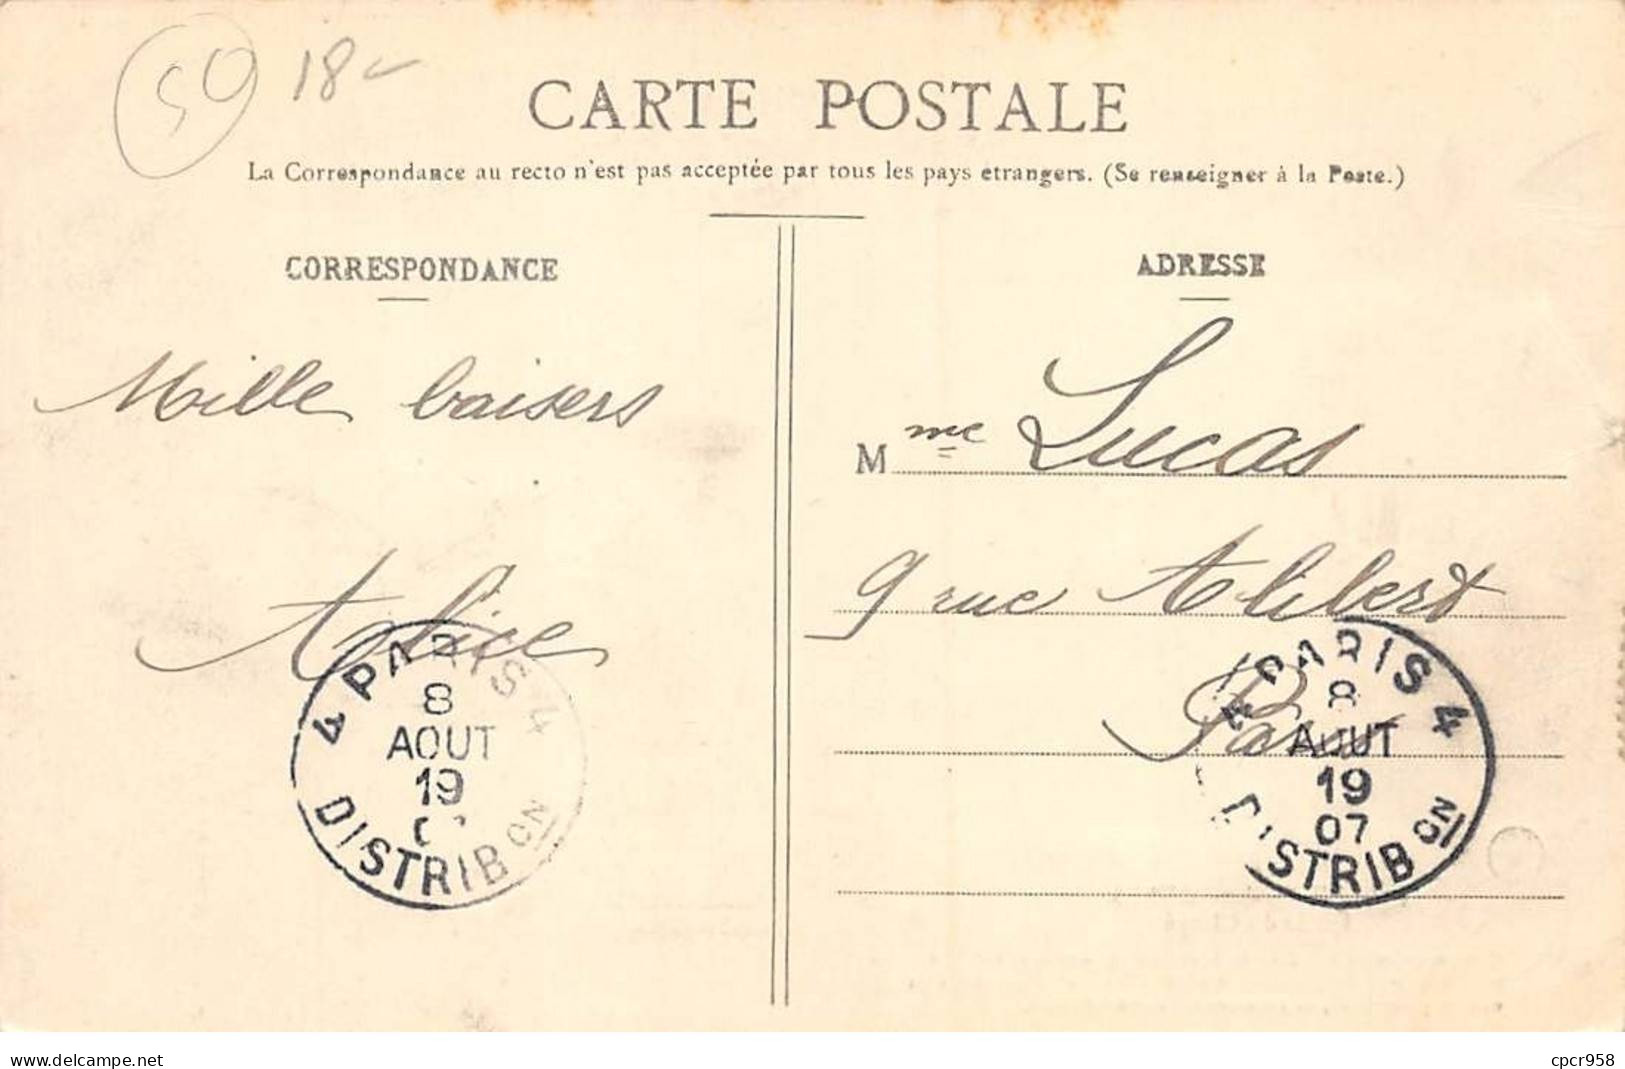 59 18
CARTE POSTALE
La Correspondance au recto n'est pas acceptée par tous les pays étrangers. (Se renseigner à la Poste.)
CORRESPONDANCE
Mille baisers
Alice
4 PARIS 4
8
AOUT
19
DISTRIBON
ADRESSE
Mme Lucas
9 rue Alibert
Paris
4 PARIS 4
8
AOUT
19
07
DISTRIBON
www.delcampe.net
cpcr958